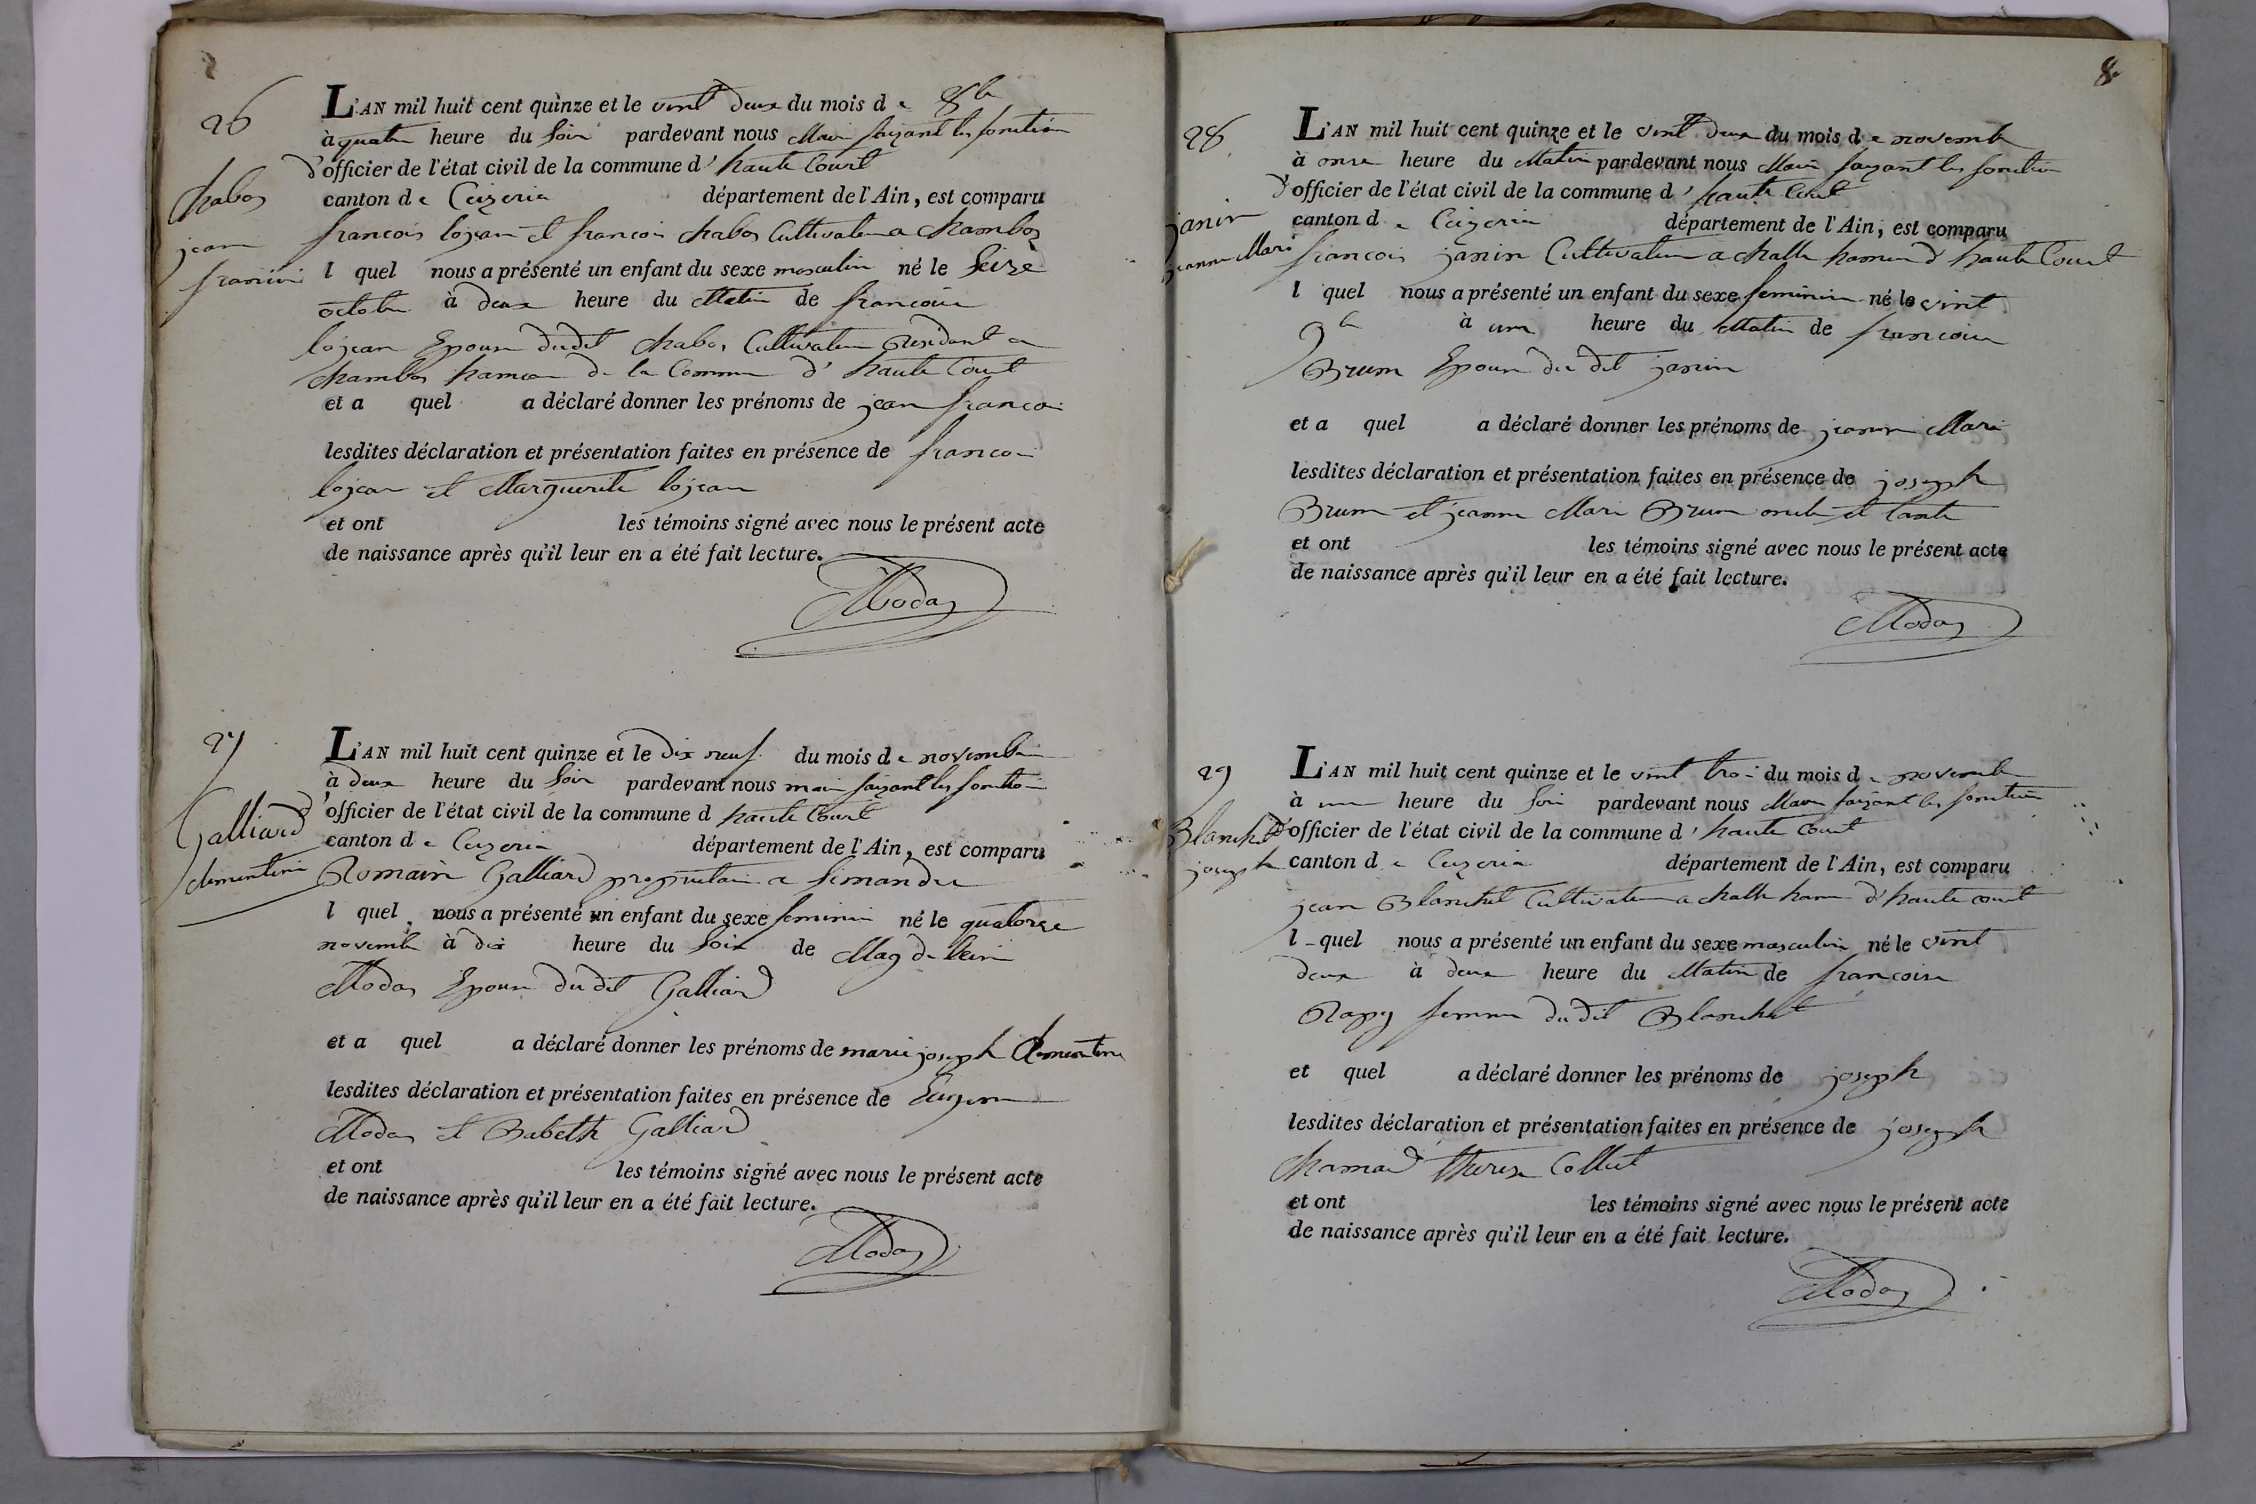 26
L'AN mil huit cent quinze et le vint deux du mois de 8b
à quatre heure du soir pardevant nous Maire faizant les fonction
d'officier de l'état civil de la commune d'haute Court
chabos
canton de Ceizeria département de l'Ain, est comparu
jean
francois
francois lojean et francois chabos Cultivateur a chambos
l quel nous a présenté un enfant du sexe masculin né le seize
octobre à deux heure du Matin de francoise
lojean Epouse dudit chabos Cultivateur Residant a
chambos hameau de la Commune d'haute Court
et a quel a déclaré donner les prénoms de jean francois
lesdites déclaration et présentation faites en présence de francois
lojean et Marguerite lojean
et ont les témoins signé avec nous le présent acte
de naissance après qu'il leur en a été fait lecture.
Modas
27
L'AN mil huit cent quinze et le dix neuf du mois de novembre
à deux heure du soir pardevant nous maire faizant les fonction
d'officier de l'état civil de la commune d haute Court
Galliard
clementine
canton de Ceizeria département de l'Ain, est comparu
Romain Galliard proprietaire a simandre
l quel nous a présenté un enfant du sexe feminin né le quatorze
novembre à dix heure du soir de Magdeleine
Modas Epouse dudit Galliard
et a quel a déclaré donner les prénoms de marie joseph Clementine
lesdites déclaration et présentation faites en présence de
Modas et Babeth Galliard
et ont les témoins signé avec nous le présent acte
de naissance après qu'il leur en a été fait lecture.
Modas
8
28
L'AN mil huit cent quinze et le vint deux du mois de novemb
à onze heure du Matin pardevant nous Maire faizant les fonction
d'officier de l'état civil de la commune d'haute Court
janin
jeanne Marie
canton de Ceizeria département de l'Ain, est comparu
francois janin Cultivateur a challe hameau d'haute Court
l quel nous a présenté un enfant du sexe feminin né le vint
9b à une heure du Matin de francoise
Brum Epouse du dit janin
et a quel a déclaré donner les prénoms de jeanne Marie
lesdites déclaration et présentation faites en présence de joseph
Brum et jeanne Marie Brum oncle et tante
et ont les témoins signé avec nous le présent acte
de naissance après qu'il leur en a été fait lecture.
Modas
29
L'AN mil huit cent quinze et le vint trois du mois de novembre
à une heure du soir pardevant nous Maire faizant les fonction
d'officier de l'état civil de la commune d'haute Court
Blanchet
joseph
canton de Ceizeria département de l'Ain, est comparu
jean Blanchet Cultivateur a challe ham d'haute court
l quel nous a présenté un enfant du sexe masculin né le vint
deux à deux heure du Matin de francoise
Rapy femme dudit Blanchet
et quel a déclaré donner les prénoms de joseph
lesdites déclaration et présentation faites en présence de joseph
chanard therese Collet
et ont les témoins signé avec nous le présent acte
de naissance après qu'il leur en a été fait lecture.
Modas